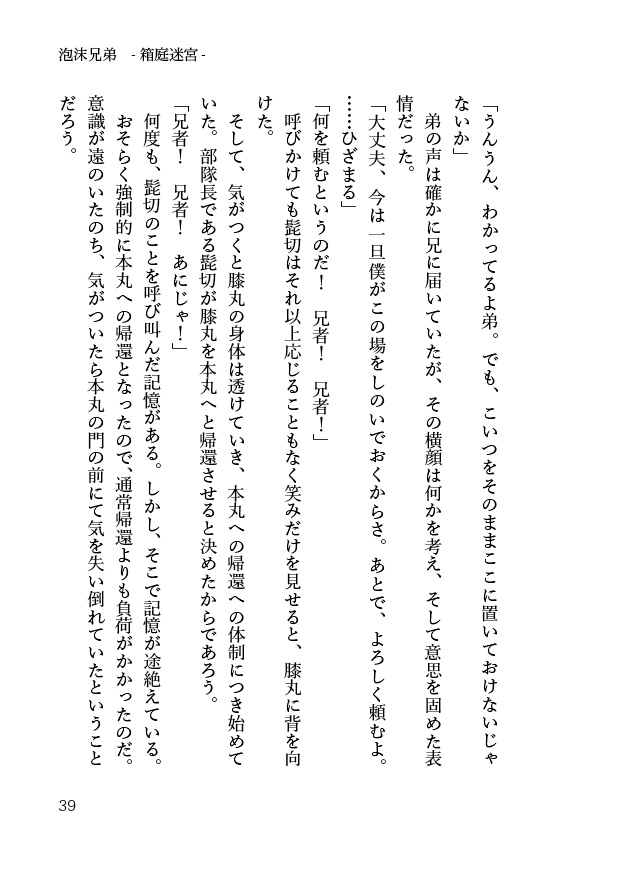 泡沫兄弟　- 箱庭迷宮 -
「うんうん、わかってるよ弟。でも、こいつをそのままここに置いておけないじゃ
ないか」
　弟の声は確かに兄に届いていたが、その横顔は何かを考え、そして意思を固めた表
情だった。
「大丈夫、今は一旦僕がこの場をしのいでおくからさ。あとで、よろしく頼むよ。
……ひざまる」
「何を頼むというのだ！　兄者！　兄者！」
　呼びかけても髭切はそれ以上応じることもなく笑みだけを見せると、膝丸に背を向
けた。
　そして、気がつくと膝丸の身体は透けていき、本丸への帰還への体制につき始めて
いた。部隊長である髭切が膝丸を本丸へと帰還させると決めたからであろう。
「兄者！　兄者！　あにじゃ！」
　何度も、髭切のことを呼び叫んだ記憶がある。しかし、そこで記憶が途絶えている。
　おそらく強制的に本丸への帰還となったので、通常帰還よりも負荷がかかったのだ。
意識が遠のいたのち、気がついたら本丸の門の前にて気を失い倒れていたということ
だろう。
39